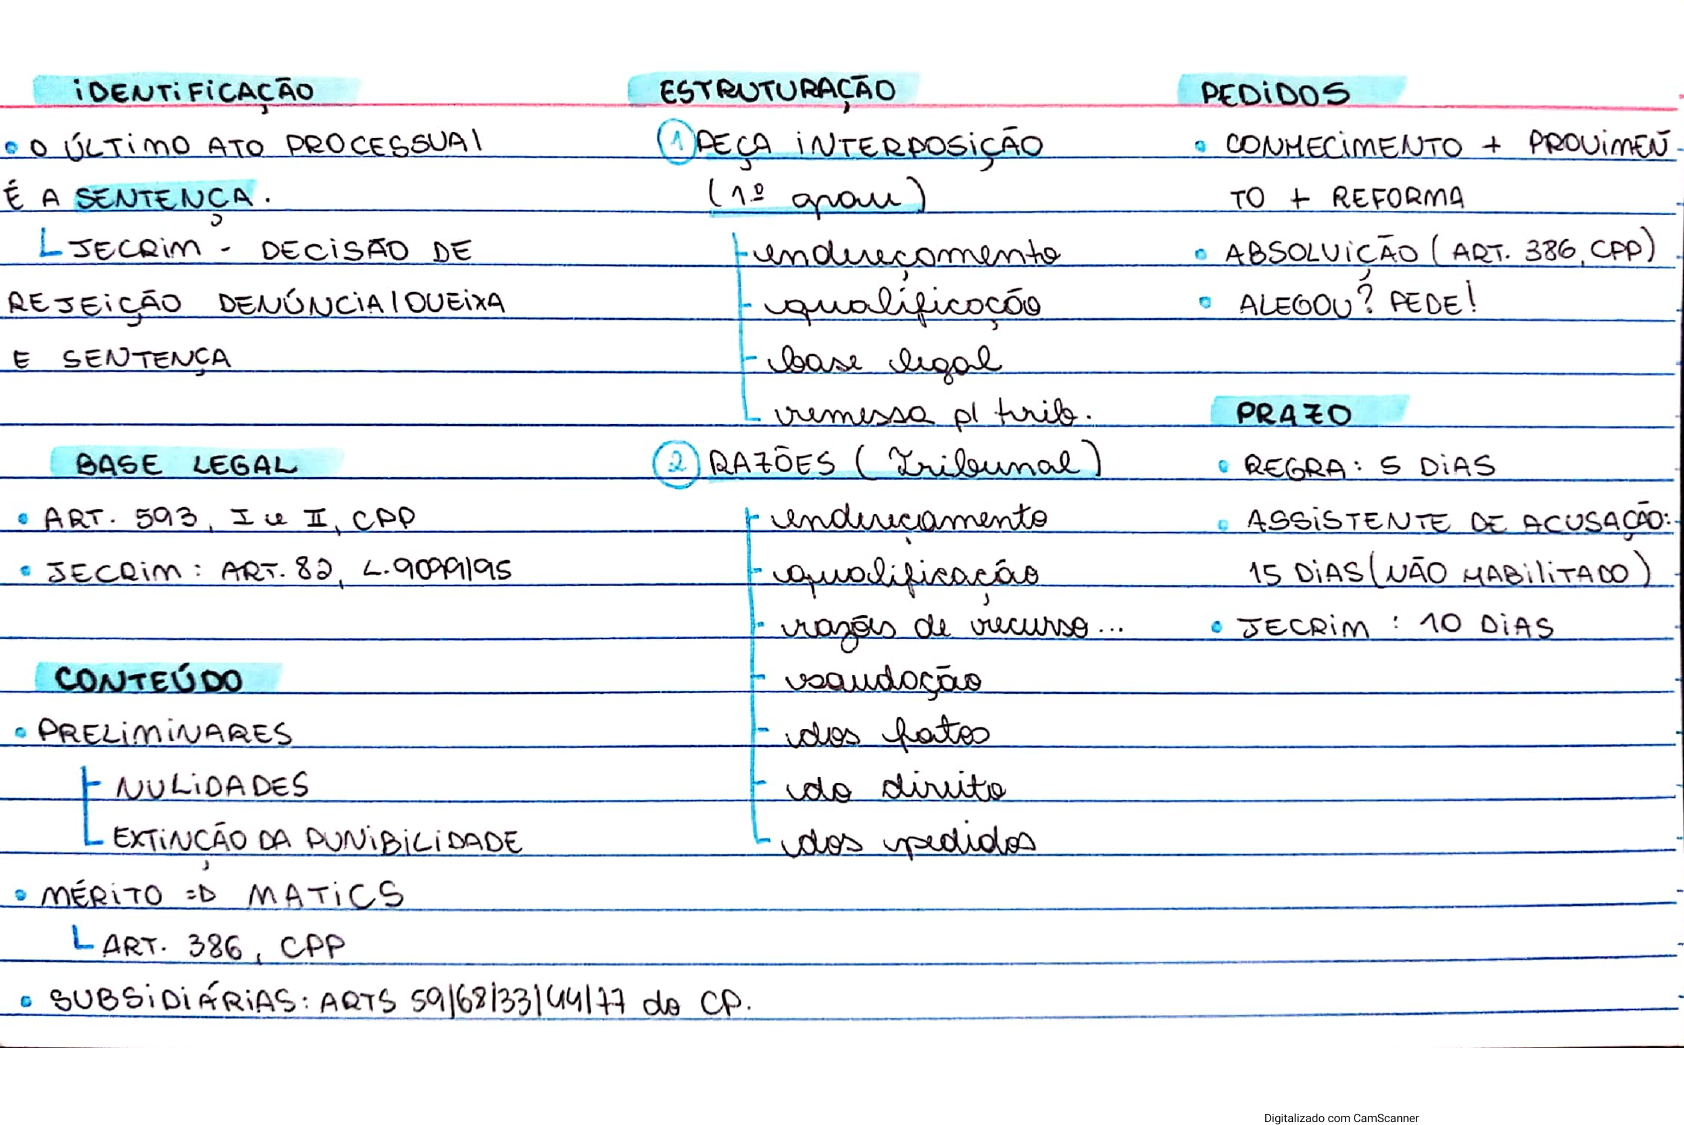 IDENTIFICAÇÃO
• O ÚLTIMO ATO PROCESSUAL
É A SENTENÇA.
JECRIM - DECISÃO DE
REJEIÇÃO DENÚNCIA/QUEIXA
E SENTENÇA
BASE LEGAL
• ART. 593, I e II, CPP
• JECRIM: ART. 82, L.9099/95
CONTEÚDO
• PRELIMINARES
NULIDADES
EXTINÇÃO DA PUNIBILIDADE
• MÉRITO => MATICS
ART. 386, CPP
• SUBSIDIÁRIAS: ARTS 59/68/33/44/77 do CP.
ESTRUTURAÇÃO
1 PEÇA INTERPOSIÇÃO
(1º grau)
endereçamento
qualificação
base legal
remessa p/ trib.
2 RAZÕES (Tribunal)
endereçamento
qualificação
razões de recurso...
saudação
dos fatos
do direito
dos pedidos
PEDIDOS
• CONHECIMENTO + PROVIMEN
TO + REFORMA
• ABSOLVIÇÃO (ART. 386, CPP)
• ALEGOU? PEDE!
PRAZO
• REGRA: 5 DIAS
• ASSISTENTE DE ACUSAÇÃO:
15 DIAS (NÃO HABILITADO)
• JECRIM : 10 DIAS
Digitalizado com CamScanner